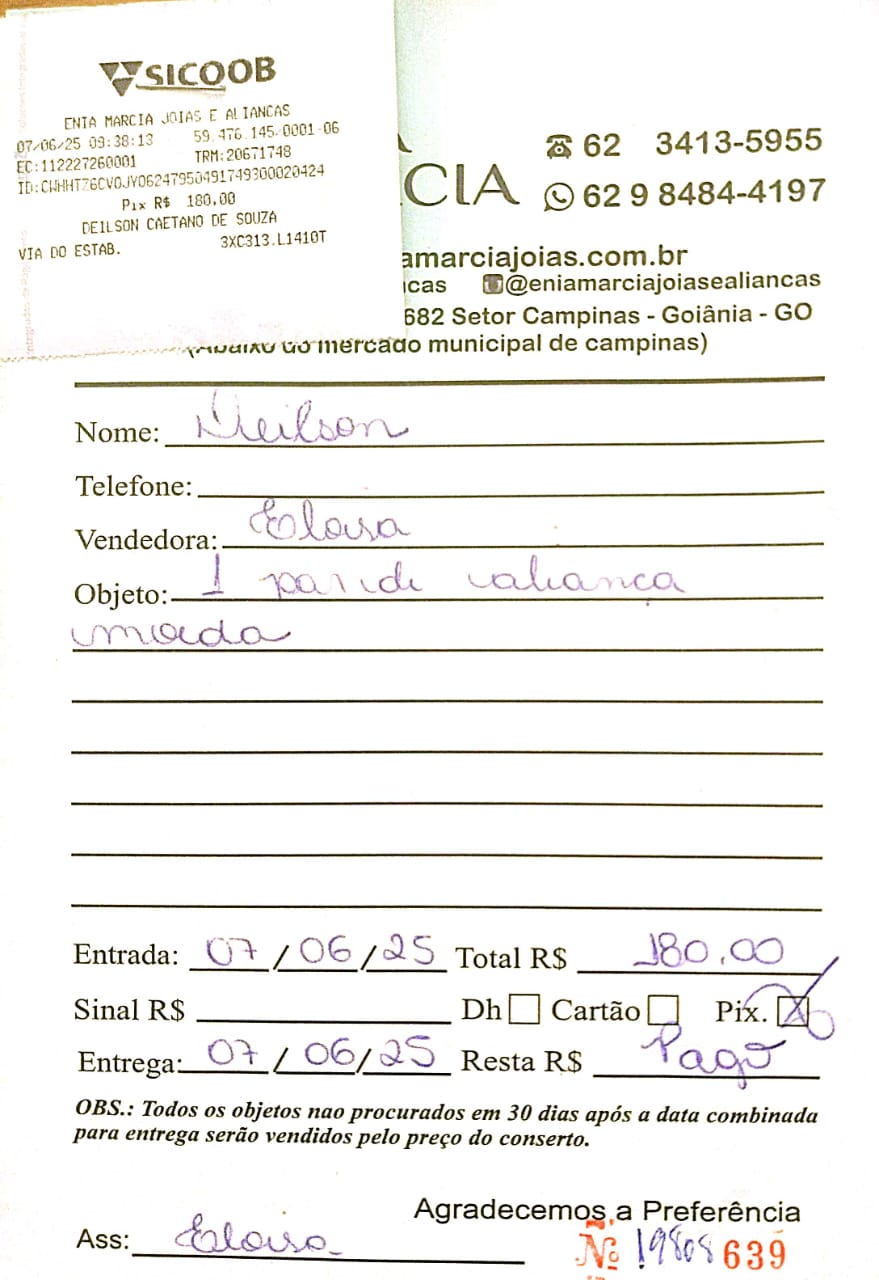 SICOOB
ENIA MARCIA JOIAS E ALIANCAS
07/06/25 09:38:13 59.476.145.0001-06
EC:112227260001 TRM:20671748
ID:CWHHTZ6CVOJY06247950491749300020424
Pix R$ 180,00
DEILSON CAETANO DE SOUZA
VIA DO ESTAB. 3XC313.L1410T
CIA
62 3413-5955
62 9 8484-4197
amarciajoias.com.br
icas @eniamarciajoiasealiancas
682 Setor Campinas - Goiânia - GO
(Abaixo do mercado municipal de campinas)
Nome: Deilson
Telefone:
Vendedora: Eloisa
Objeto: 1 par de aliança
moeda
Entrada: 07/06/25 Total R$ 180,00
Sinal R$ Dh Cartão Pix. X
Entrega: 07/06/25 Resta R$ Pago
OBS.: Todos os objetos nao procurados em 30 dias após a data combinada
para entrega serão vendidos pelo preço do conserto.
Agradecemos a Preferência
Ass: Eloisa
Nº 19808 639